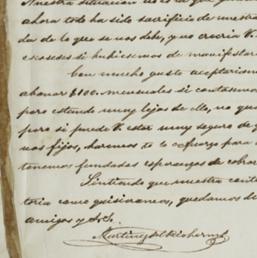 Nuestra situacion
ahora todo ha sido sacrificio de nuestra
da de lo que se nos debe, y no creeria V.
si hubiesemos de manifestar
Con mucho gusto aceptariamos
abonar $100. mensuales si contasemos
pero estando muy lejos de ello, no que
pero si puede V. estar muy seguro de q
nos fijos, haremos
tenemos fundadas esperanzas de cobrar
Sintiendo que nuestra contes
toria como quisieramos, quedamos de
amigos y S.S.
Martinez del Rio hermos